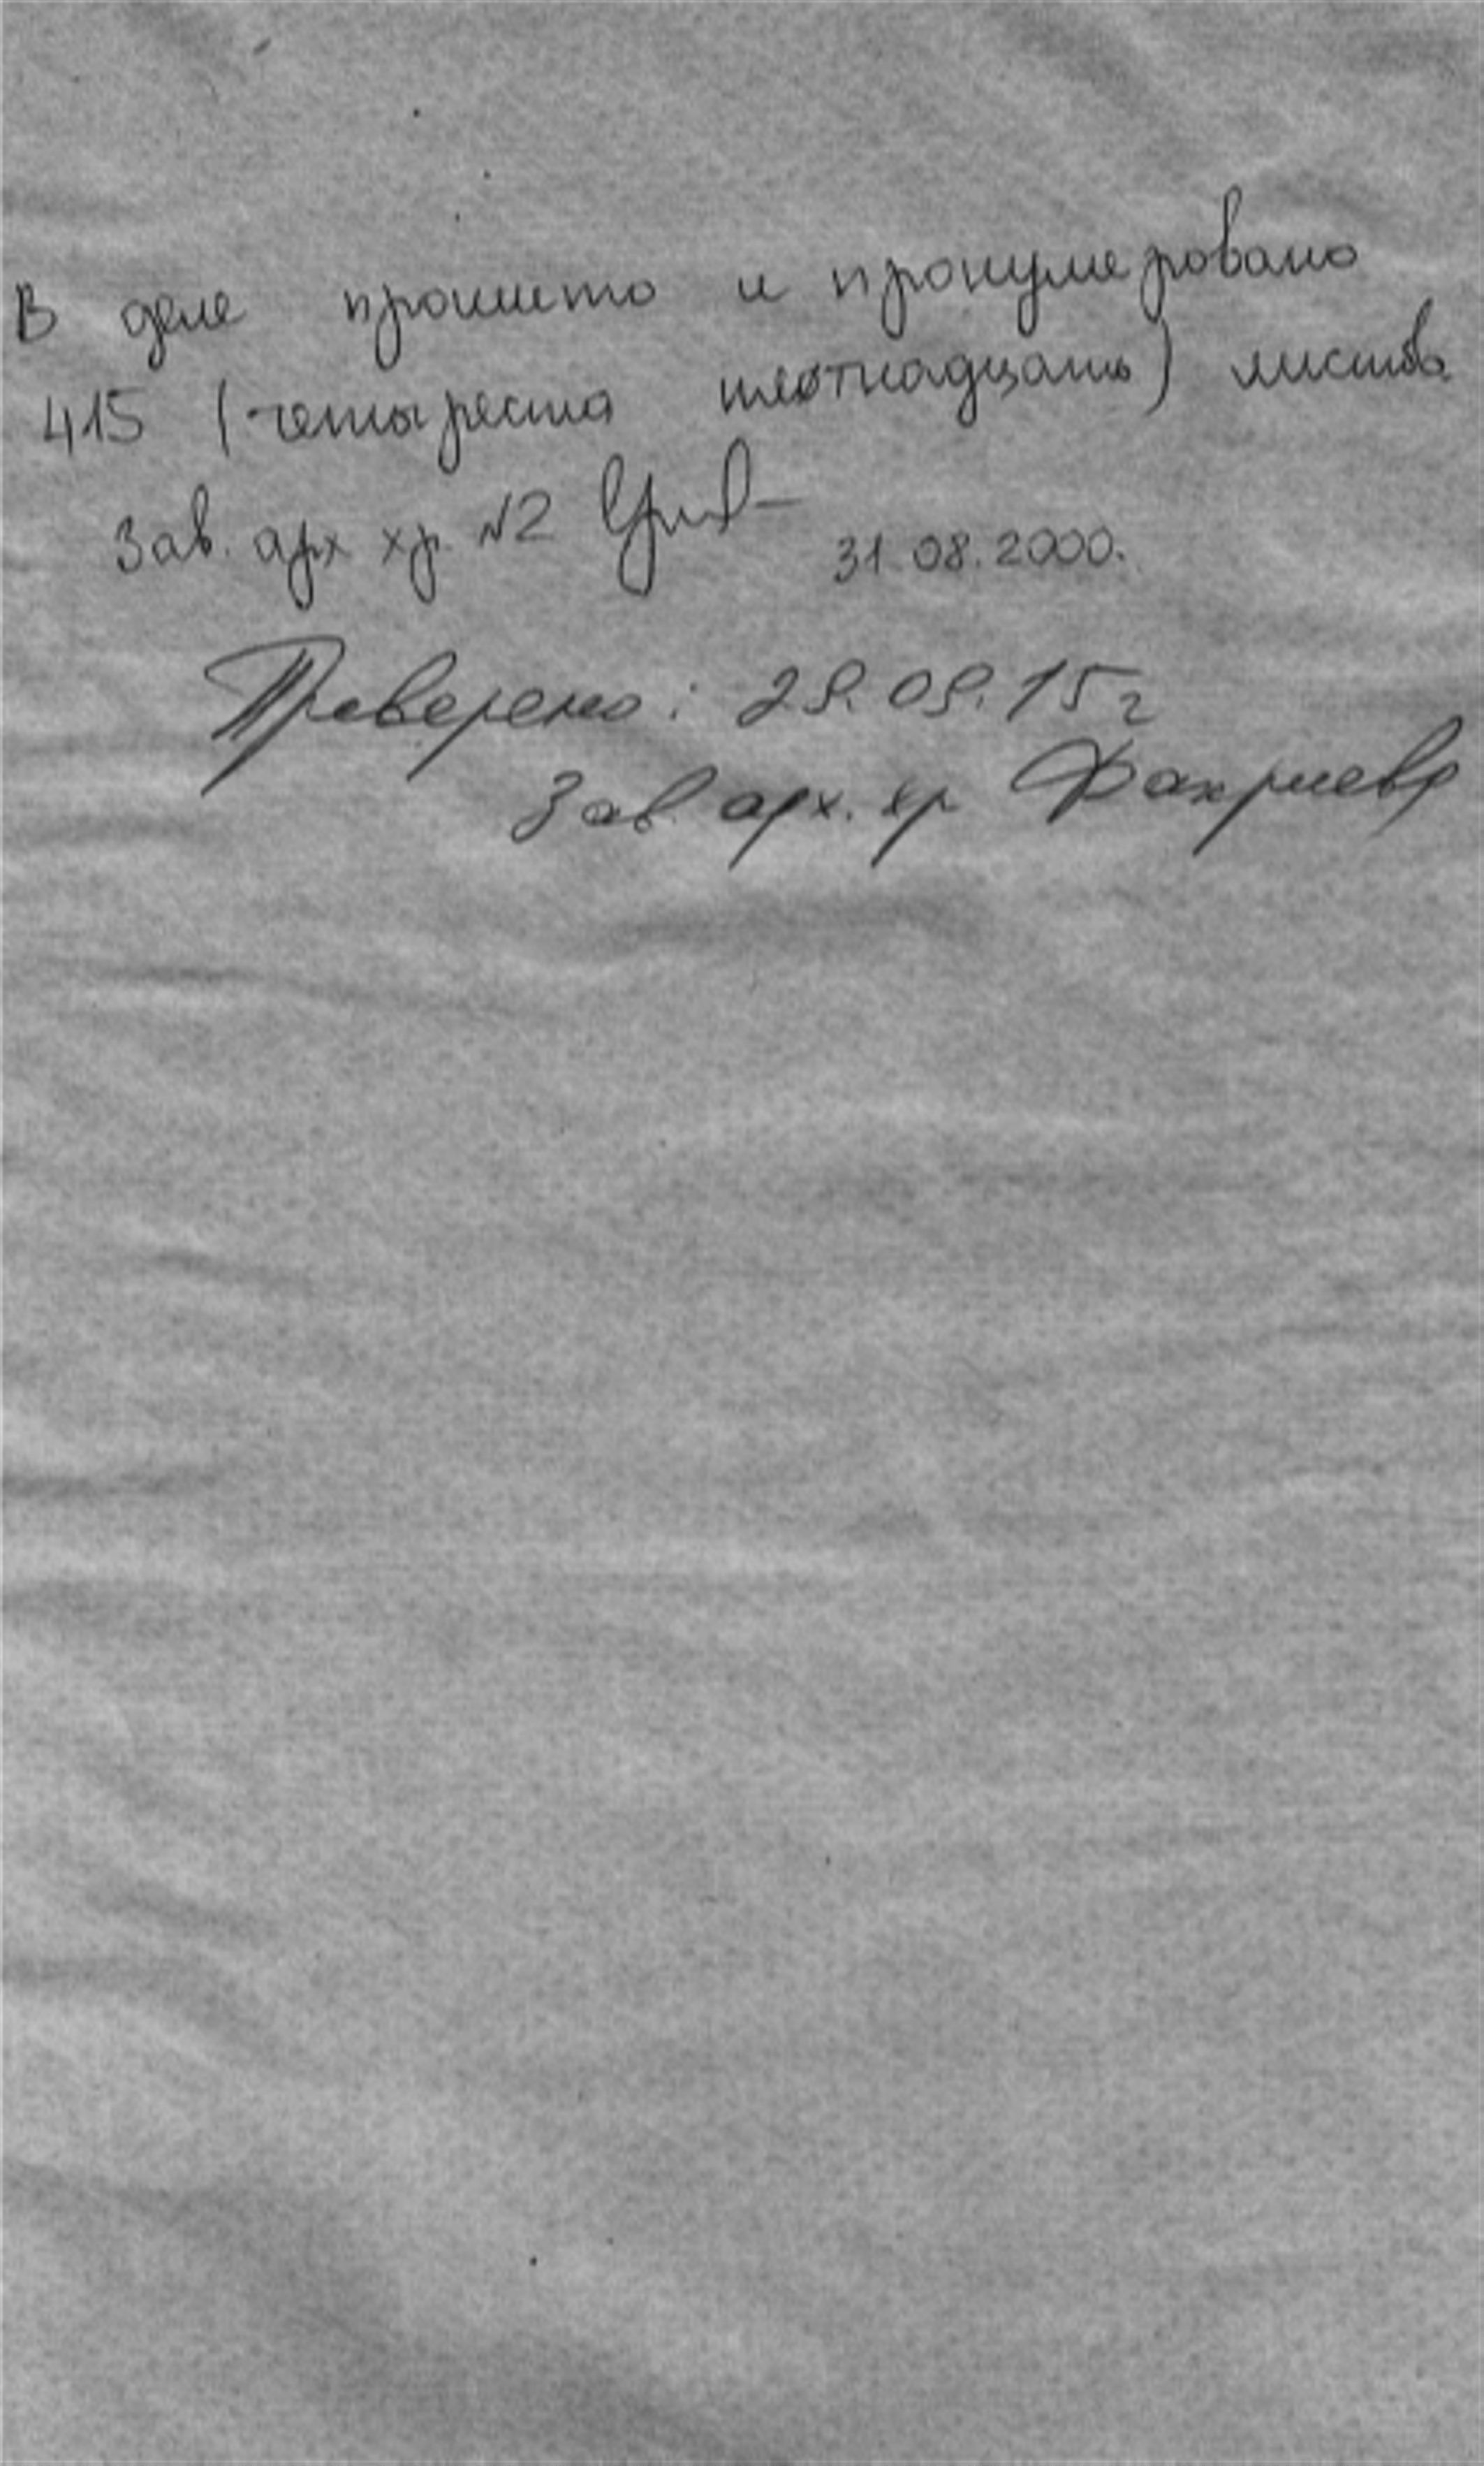 В деле прошито и пронумеровано
415 (четыреста пятнадцать) листов
Зав. арх хр. №2 31.08.2000.
Проверено: 29.09.15 г
Зав. арх. хр Факриева